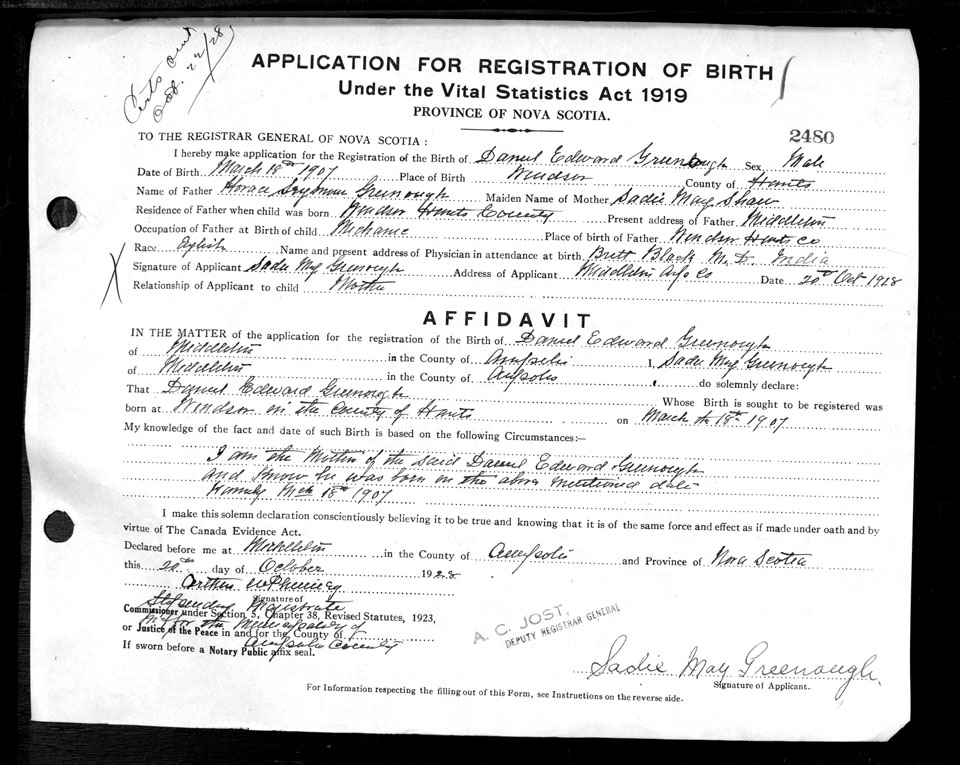 Certs sent
Oct. 22/28
APPLICATION FOR REGISTRATION OF BIRTH
Under the Vital Statistics Act 1919
PROVINCE OF NOVA SCOTIA.
2480
TO THE REGISTRAR GENERAL OF NOVA SCOTIA :
I hereby make application for the Registration of the Birth of Daniel Edward Greenough Sex Male
Date of Birth March 18th 1907 Place of Birth Windsor County of Hants
Name of Father Horace Seymour Greenough Maiden Name of Mother Sadie May Shaw
Residence of Father when child was born Windsor Hants County Present address of Father Middleton
Occupation of Father at Birth of child Mechanic Place of birth of Father Windsor Hants Co
Race Name and present address of Physician in attendance at birth Britt Black M. D. India
Signature of Applicant Sadie May Greenough Address of Applicant Middleton Co Date 20th Oct 1928
Relationship of Applicant to child Mother
AFFIDAVIT
IN THE MATTER of the application for the registration of the Birth of Daniel Edward Greenough
of Middleton in the County of Annapolis I, Sadie May Greenough
of Middleton in the County of Annapolis do solemnly declare:
That Daniel Edward Greenough Whose Birth is sought to be registered was
born at Windsor in the County of Hants on March the 18th 1907
My knowledge of the fact and date of such Birth is based on the following Circumstances:—
I am the Mother of the said Daniel Edward Greenough
and know he was born on the above mentioned date
Namely Mch 18th 1907
I make this solemn declaration conscientiously believing it to be true and knowing that it is of the same force and effect as if made under oath and by
virtue of The Canada Evidence Act.
Declared before me at Middleton in the County of Annapolis and Province of Nova Scotia
this 20th day of October 1928
Arthur
Signature of
Stipendiary Magistrate
Commissioner under Section 3, Chapter 38, Revised Statutes, 1923,
in for the Municipality of
or Justice of the Peace in and for the County of
Annapolis County
If sworn before a Notary Public affix seal.
A. C. JOST,
DEPUTY REGISTRAR GENERAL
Sadie May Greenough.
Signature of Applicant.
For Information respecting the filling out of this Form, see Instructions on the reverse side.